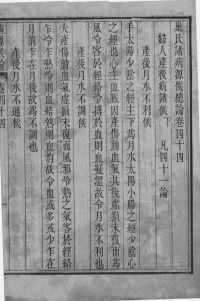 巢氏諸病源候總論卷四十四
婦人產後病諸候 凡四十一論
產後月水不利候
手太陽少陰之經主下為月水太陽小腸之經少陰心
之經也心主血脈因產傷動血氣其後虛損未復而為
風冷客於經絡冷搏於血則血凝澀故令月水不利也
產後月水不調候
夫產傷動血氣虛損未復而風邪冷熱之氣客於經絡
乍冷乍熱冷則血結熱則血消故令血或多或少乍在
月前乍在月後故為不調也
產後月水不通候
卷四十四